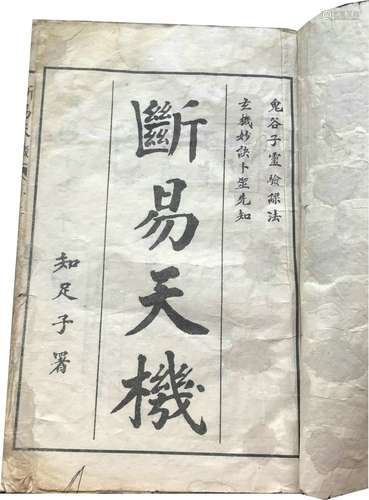 鬼谷子靈驗課法
玄機妙訣卜筮先知
斷易天機
知足子署